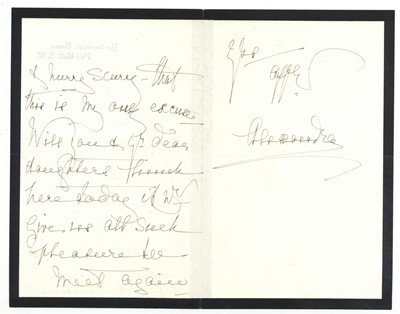 Marlborough House,
Pall Mall. S.W.
& hurry scurry – that
this is my only excuse
Will you & yr dear
daughters lunch
here today it wd
give us all such
pleasure to
meet again
Yrs
affly
Alexandra